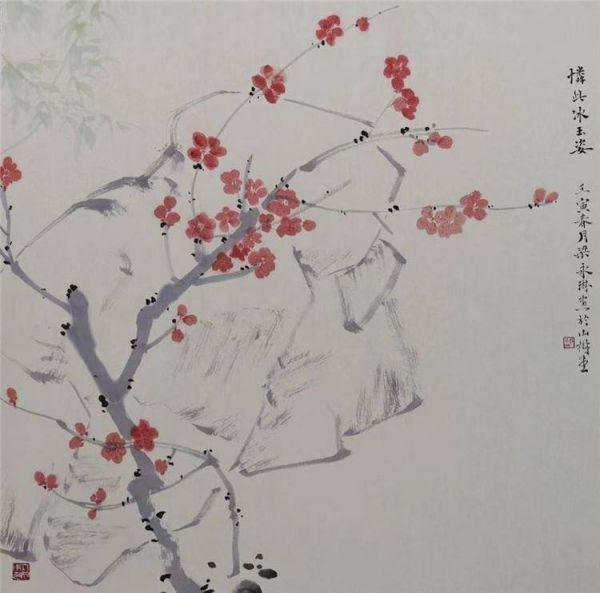 憐此冰玉姿
壬寅春月梁永琳寫於山樹堂